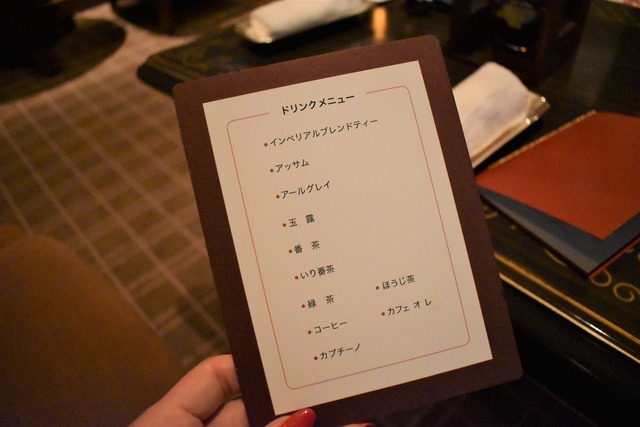 ドリンクメニュー
●インペリアルブレンドティー
●アッサム
●アールグレイ
●玉　露
●番　茶
●いり番茶
●緑　茶
●ほうじ茶
●コーヒー
●カフェ オ レ
●カプチーノ